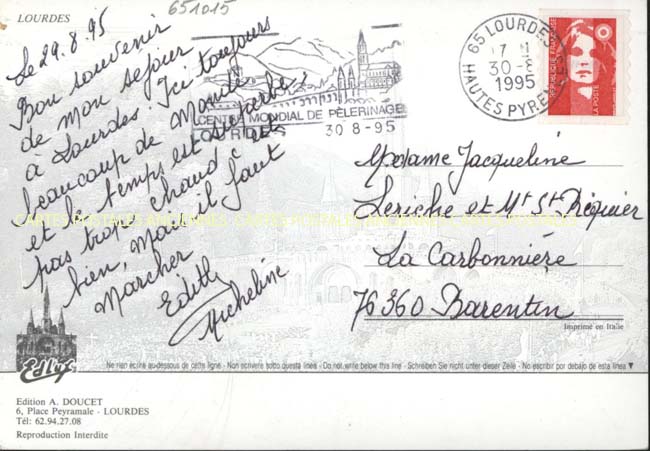 LOURDES
651015
Le 29.8.95
Bon souvenir
de mon séjour
à Lourdes. Ici toujours
beaucoup de Monde
et le temps est superbe,
pas trop chaud c'est
bien, Mais il faut
Marcher
Edith
Micheline
CENTRE MONDIAL DE PÈLERINAGE
LOURDES 30 8-95
65 LOURDES
17 H
30-8
1995
HAUTES PYRENEES
REPUBLIQUE FRANÇAISE
LA POSTE
Madame Jacqueline
Leriche et Mr St Riquier
La Carbonnière
76360 Barentin
CARTES POSTALES ANCIENNES
Imprimé en Italie
Edlys
Ne rien écrire au-dessous de cette ligne - Non scrivere sotto questa linea - Do not write below this line - Schreiben Sie nicht unter dieser Zeile - No escribir por debajo de esta linea ▼
Edition A. DOUCET
6, Place Peyramale - LOURDES
Tél: 62.94.27.08
Reproduction Interdite